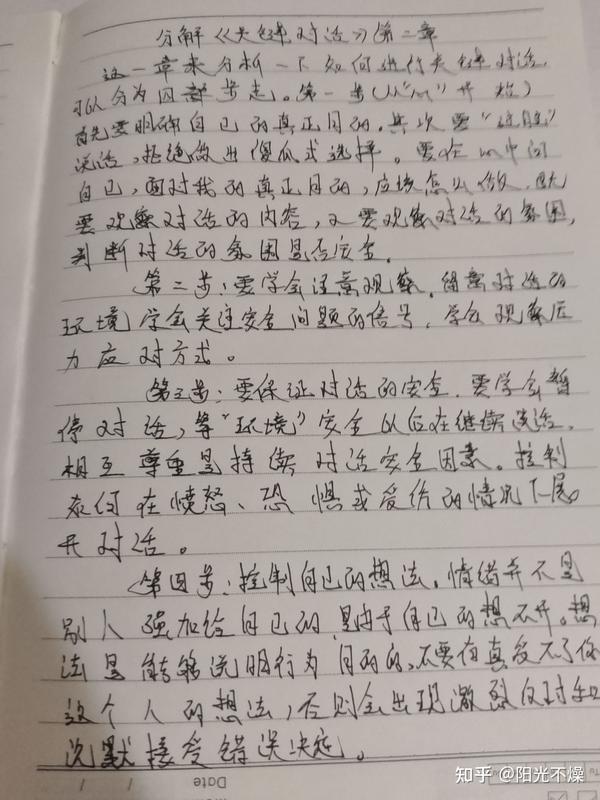 分解《关键对话》第二章
这一章来分析一下如何进行关键对话,
可以分为四部步走。第一步(从"心"开始)
首先要明确自己的真正目的,其次要"
说话,拒绝做出傻瓜式选择。要在心中问
自己,面对我的真正目的,应该怎么做,既
要观察对话的内容,又要观察对话的氛围,
判断对话的氛围是否安全。
第二步:要学会注意观察,留意对话的
环境,学会关注安全问题的信号,学会观察压
力应对方式。
第三步:要保证对话的安全,要学会暂
停对话,等"环境"安全以后在继续谈话,
相互尊重是持续对话安全因素。控制
在愤怒、恐惧或受伤的情况下展
开对话。
第四步:控制自己的想法,情绪并不是
别人强加给自己的,是由于自己的想不开。想
法是能够说明行为目的的,不要
这个人的想法,否则会出现激烈反对和
沉默接受错误决定。
Date
知乎 @阳光不燥